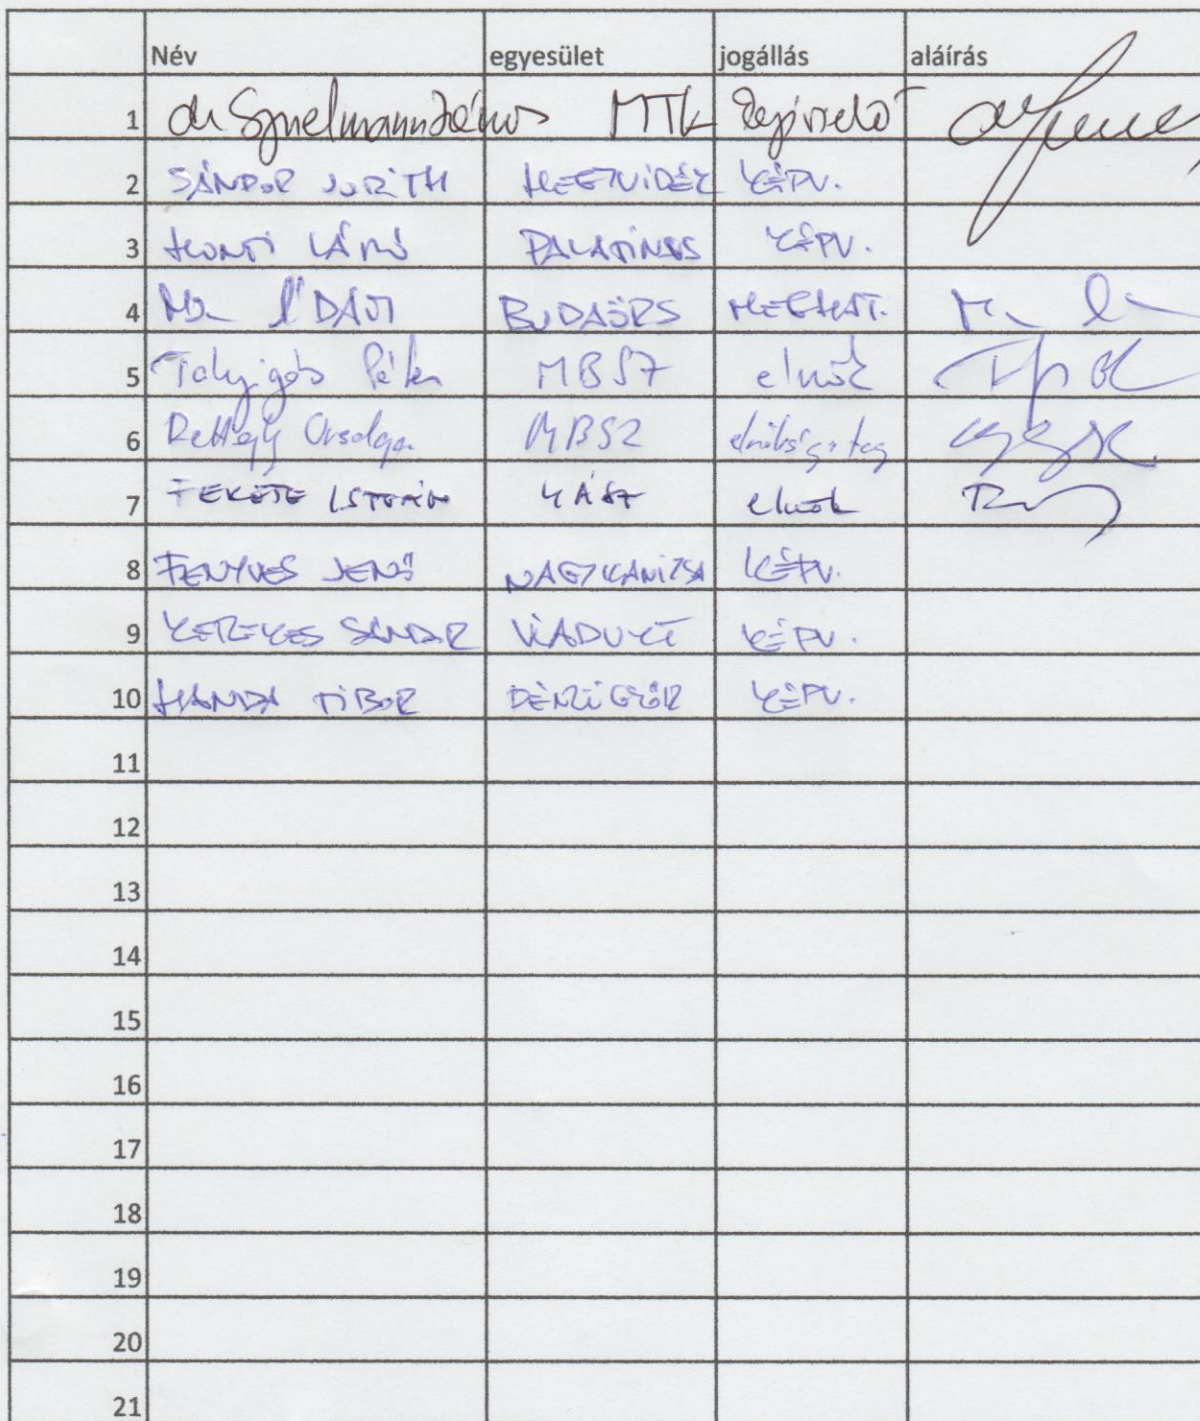 Név egyesület jogállás aláírás
1 dr Spielmann János MTK képviselő
2 SÁNDOR JUDITH HEGYVIDÉK KÉPV.
3 HONTI LÁSZLÓ PALATINUS KÉPV.
4 DÁVID BUDAÖRS MEGHAT.
5 Talyigás Péter MBSZ elnök
6 Rettegy Orsolya MBSZ elnökségi tag
7 FEKETE ISTVÁN elnök
8 FENYVES JENŐ NAGYKANIZSA KÉPV.
9 KEREKES SÁNDOR VIADUKT KÉPV.
10 HANDA TIBOR KÉPV.
11
12
13
14
15
16
17
18
19
20
21